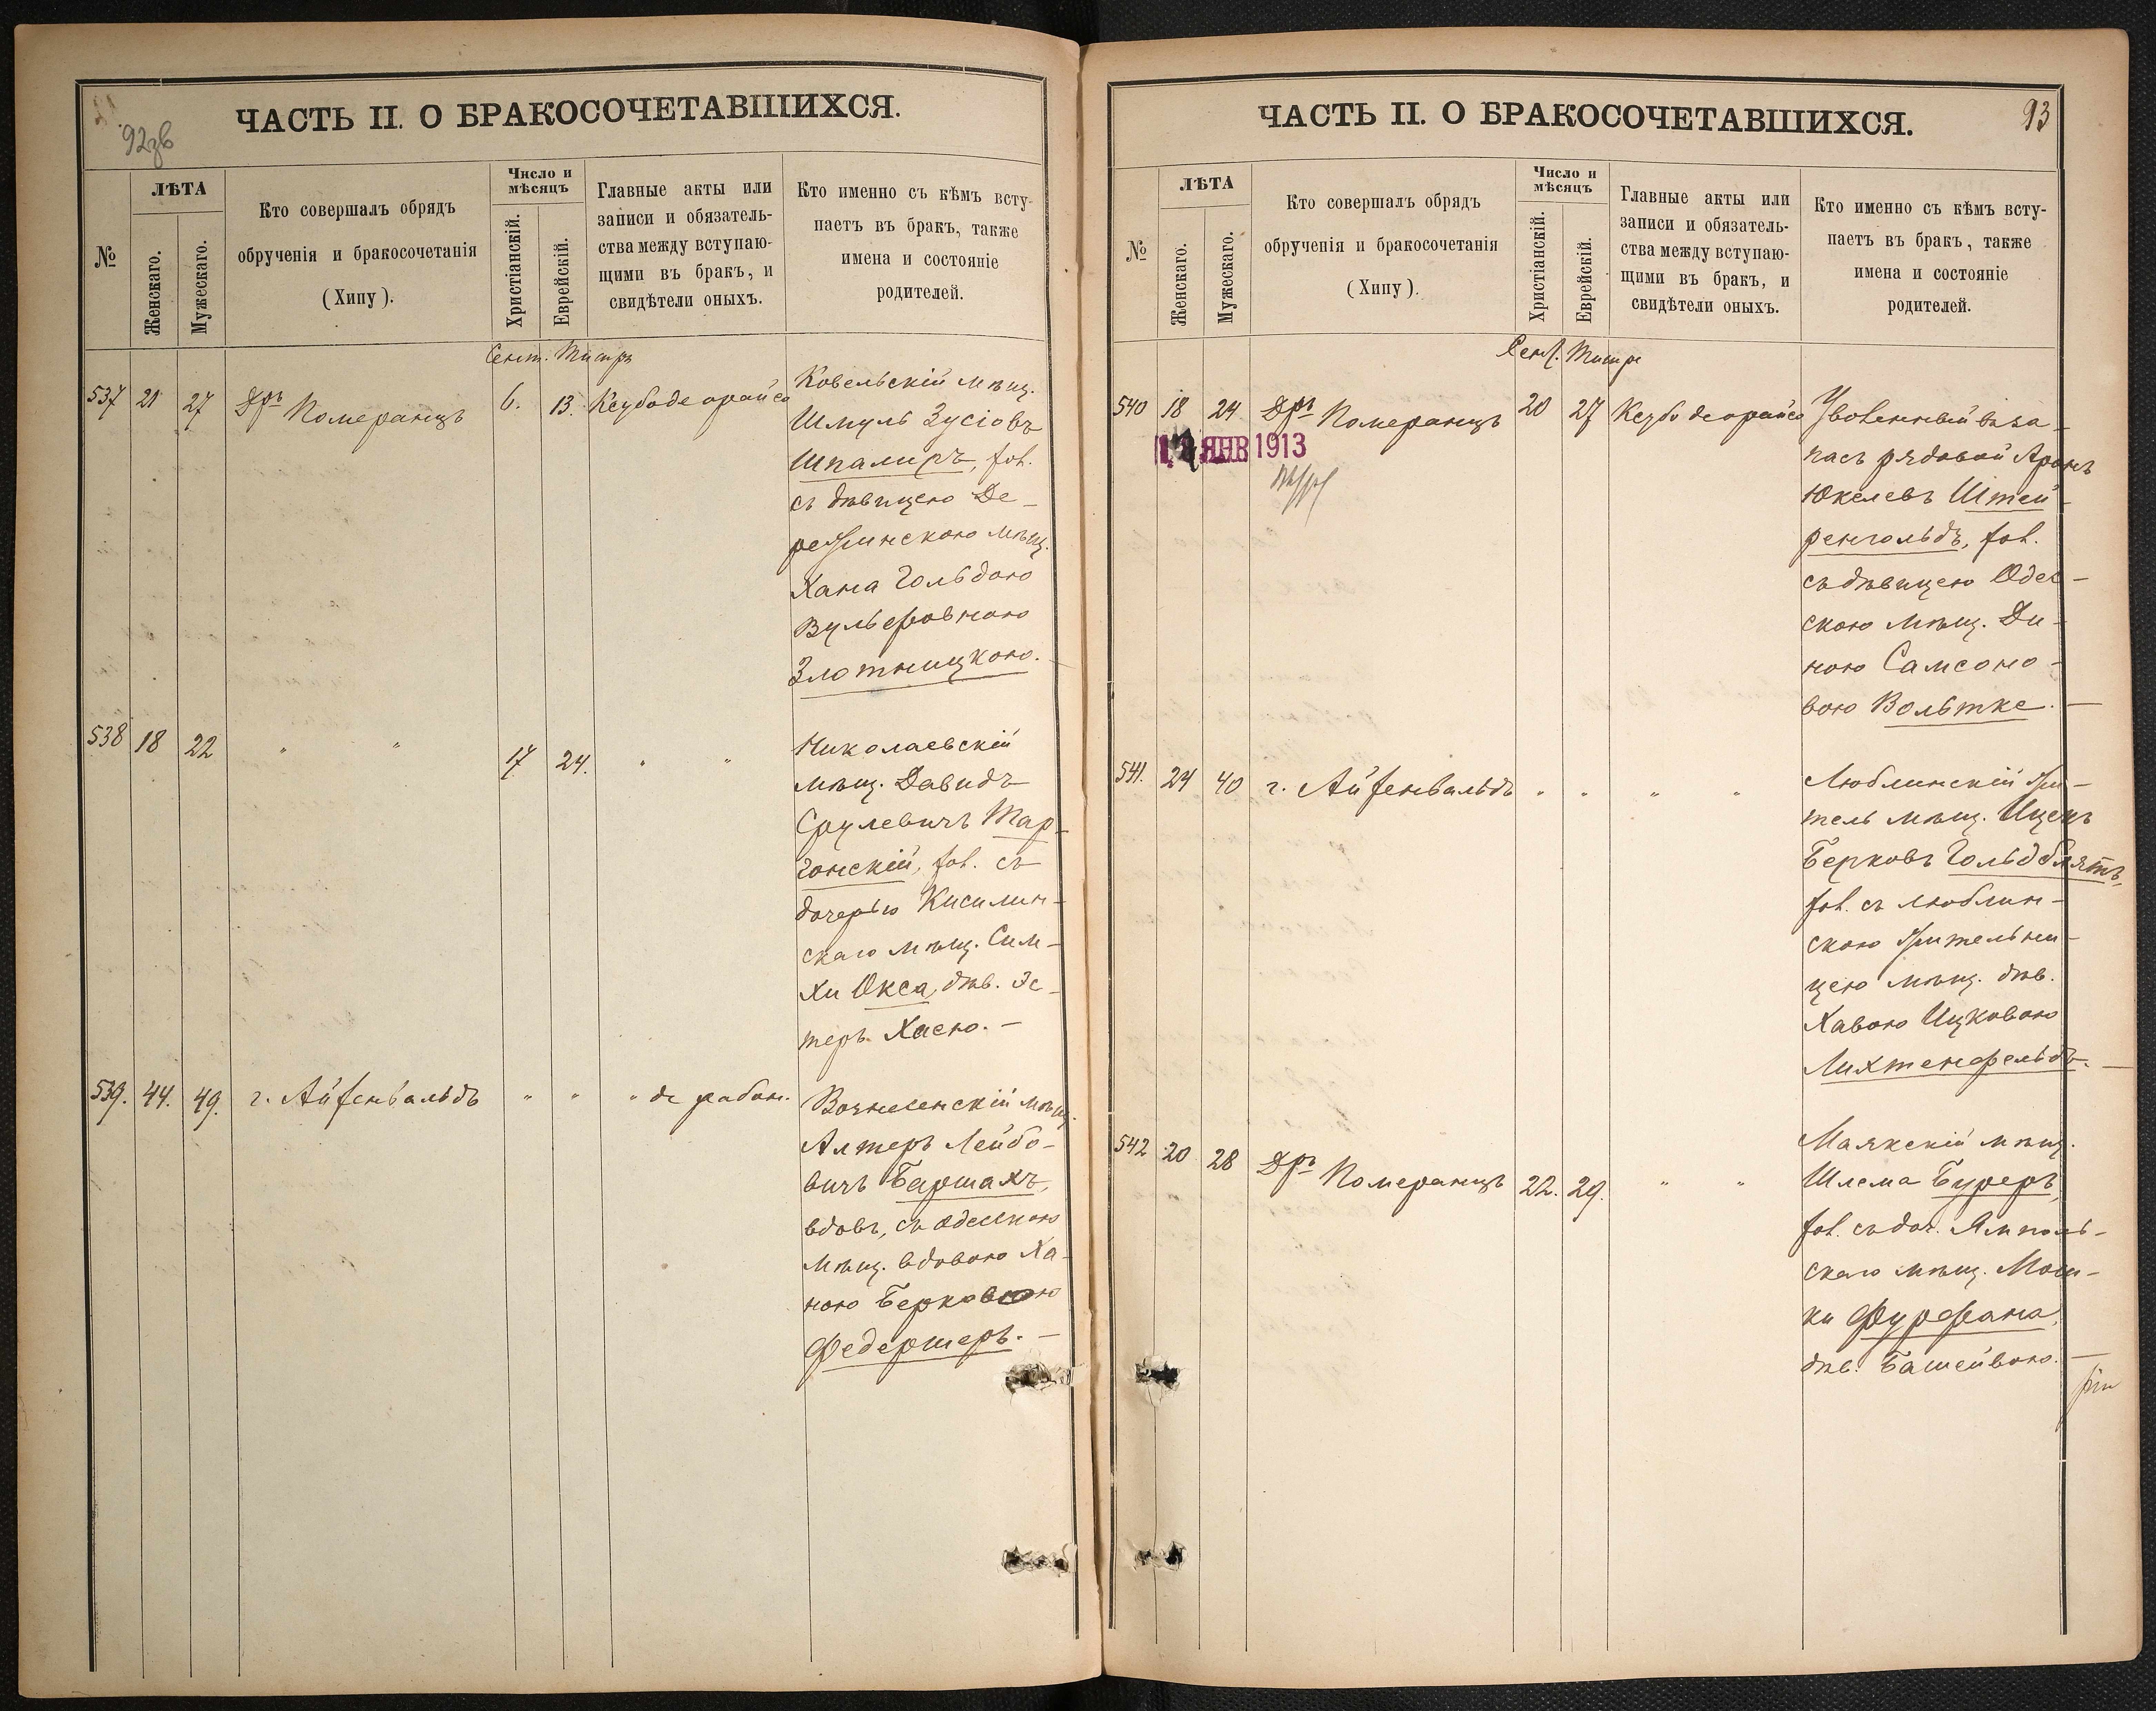 92зв
ЧАСТЬ II. О БРАКОСОЧЕТАВШИХСЯ.
№
ЛѢТА
Женскаго.
Мужескаго.
Кто совершалъ обрядъ
обрученія и бракосочетанія
(Хипу).
Число и
мѣсяцъ
Христіанскій.
Еврейскій.
Главные акты или
записи и обязатель-
ства между вступаю-
щими въ бракъ, и
свидѣтели оныхъ.
Кто именно съ кѣмъ всту-
паетъ въ бракъ, также
имена и состояніе
родителей.
Сент. Тишри
537 21 27 Дръ Померанцъ 6. 13. Ксубо деорайсо
Ковельскій мѣщ.
Шмуль Зусіовъ
Шпалиръ, хол.
съ дѣвицею Де-
ражинскою мѣщ.
Хана Гольдою
Вульфовною
Злотницкою.
538 18 22 " " 17 24. " "
Николаевскій
мѣщ. Давидъ
Срулевичъ Тар-
гонскій, хол. съ
дочерью Кисилин-
скаго мѣщ. Сим-
хи Окса, дѣв. Эс-
теръ Хасею. —
539. 44. 49. г. Айзенвальдъ " " " де рабон.
Вознесенскій мѣщ.
Алтеръ Лейбо-
вичъ Баршахъ,
вдовъ, съ Одесскою
мѣщ. вдовою Ха-
ною Берковною
Федершеръ. —
93
ЧАСТЬ II. О БРАКОСОЧЕТАВШИХСЯ.
№
ЛѢТА
Женскаго.
Мужескаго.
Кто совершалъ обрядъ
обрученія и бракосочетанія
(Хипу).
Число и
мѣсяцъ
Христіанскій.
Еврейскій.
Главные акты или
записи и обязатель-
ства между вступаю-
щими въ бракъ, и
свидѣтели оныхъ.
Кто именно съ кѣмъ всту-
паетъ въ бракъ, также
имена и состояніе
родителей.
Сент. Тишри
540 18 24 Дръ Померанцъ 20 27 Ксубо деорайсо
ЯНВ 1913
Уволенный въ за-
пасъ рядовой Аронъ
Юкелевъ Штей-
ренгольдъ, хол.
съ дѣвицею Одес-
скою мѣщ. Ди-
ною Самсоно-
вою Вольтке. —
541. 24 40 г. Айзенвальдъ " " " "
Люблинскій жи-
тель мѣщ. Ицекъ
Берковъ Гольдблятъ,
хол. съ люблин-
скою жительни-
цею мѣщ. дѣв.
Хавою Ицковою
Лихтенфельдъ. —
542 20 28 Дръ Померанцъ 22. 29. " "
Маякскій мѣщ.
Шлема Буреръ,
хол. съ доч. Ямполь-
скаго мѣщ. Мош-
ки Фурфана,
дѣв. Башейвою. —